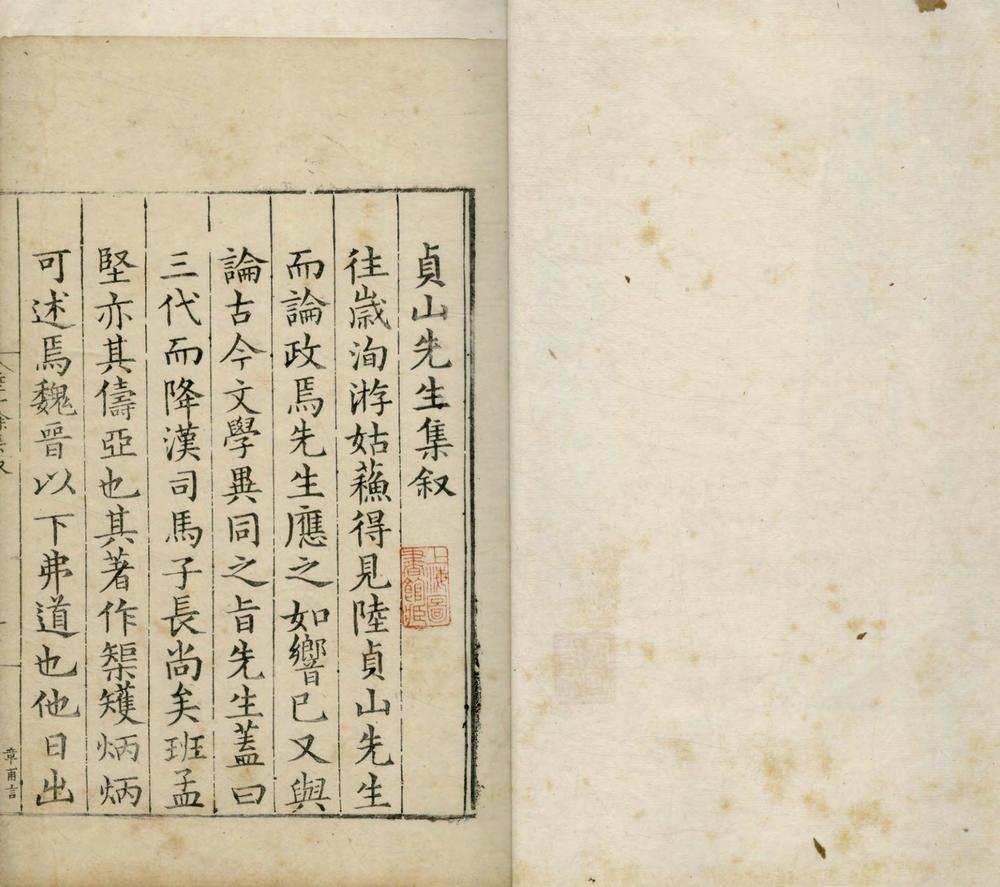 貞山先生集叙
往歲洵游姑蘓得見陸貞山先生
而論政焉先生應之如響已又與
論古今文學異同之旨先生蓋曰
三代而降漢司馬子長尚矣班孟
堅亦其儔亞也其著作榘矱炳炳
可述焉魏晉以下弗道也他日出
上海圖
書館藏
章甫言